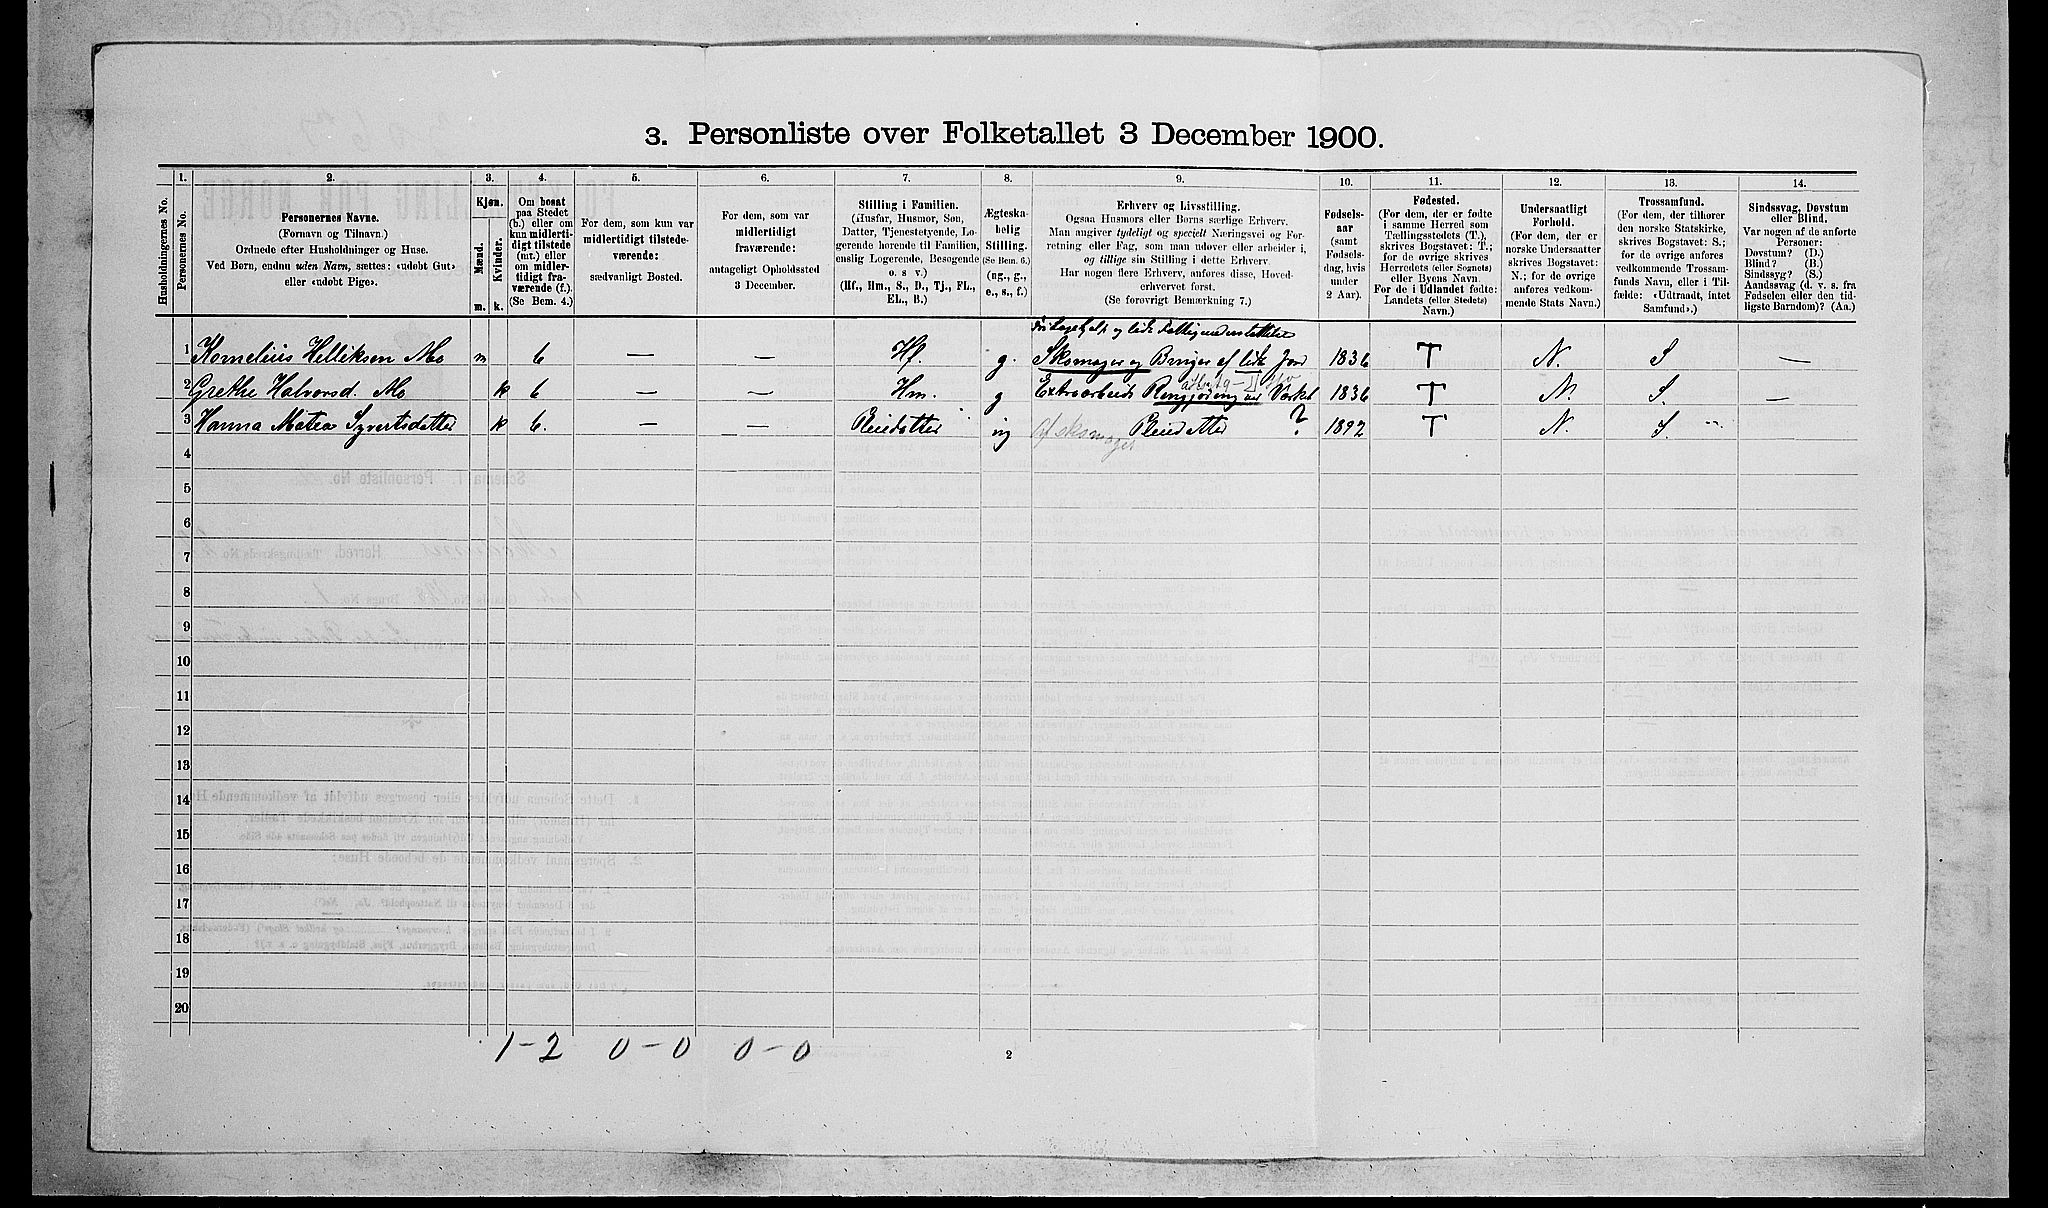 3. Personliste over Folketallet 3 December 1900.
1. 2. 3. 4. 5. 6. 7. 8. 9. 10. 11. 12. 13. 14.
Husholdningernes No.
Personernes No.
Personernes Navne.
(Fornavn og Tilnavn.)
Ordnede efter Husholdninger og Huse.
Ved Børn, endnu uden Navn, sættes: «udøbt Gut»
eller «udøbt Pige».
Kjøn.
Mænd.
Kvinder.
m. k.
Om bosat
paa Stedet
(b.) eller om
kun midlerti-
digt tilstede
(mt.) eller
om midler-
tidigt fra-
værende (f.).
(Se Bem. 4.)
For dem, som kun var
midlertidigt tilstede-
værende:
sædvanligt Bosted.
For dem, som var
midlertidigt
fraværende:
antageligt Opholdssted
3 December.
Stilling i Familien.
(Husfar, Husmor, Søn,
Datter, Tjenestetyende, Lo-
gerende hørende til Familien,
enslig Logerende, Besøgende
o. s v.)
(Hf., Hm., S., D., Tj., FL.,
EL., B.)
Ægteska-
belig
Stilling.
(Se Bem. 6.)
(ug., g.,
e., s., f.)
Erhverv og Livsstilling.
Ogsaa Husmors eller Børns særlige Erhverv.
Man angiver tydeligt og specielt Næringsvei og For-
retning eller Fag, som man udøver eller arbeider i,
og tillige sin Stilling i dette Erhverv.
Har nogen flere Erhverv, anføres disse, Hoved-
erhvervet først.
(Se forøvrigt Bemærkning 7.)
Fødsels-
aar
(samt
Fødsels-
dag, hvis
under
2 Aar).
Fødested.
(For dem, der er fødte
i samme Herred som
Tællingsstedets (T.),
skrives Bogstavet: T.;
for de øvrige skrives
Herredets (eller Sognets)
eller Byens Navn.
For de i Udlandet fødte:
Landets (eller Stedets)
Navn.)
Undersaatligt
Forhold.
(For dem, der er
norske Undersaatter
skrives Bogstavet:
N.; for de øvrige
anføres vedkom-
mende Stats Navn.)
Trossamfund.
(For dem, der tilhører
den norske Statskirke,
skrives Bogstavet: S.;
for de øvrige anføres
vedkommende Trossam-
funds Navn, eller i Til-
fælde: «Udtraadt, intet
Samfund».)
Sindssvag, Døvstum
eller Blind.
Var nogen af de anførte
Personer:
Døvstum? (D.)
Blind? (B.)
Sindssyg? (S.)
Aandssvag (d. v. s. fra
Fødselen eller den tid-
ligste Barndom)? (Aa.)
og lidt Fattigunderstøttelse
1 Kornelius Helliksen Mo m b — — Hf. g. Skomager og Bruger af lidt Jord 1836 T N. S —
2 Grethe Halvorsd. Mo k b — — Hm. g Extraarbeide Rengjøring ved Værket 1836 T N. S. —
3 Hanna Matea Syvertsdatter k b. — — Pleiedatter ug Af skomager Pleiedatter ? 1892 T N. S. "
4
5
6
7
8
9
10
11
12
13
14
15
16
17
18
19
20
1-2 0-0 0-0
2